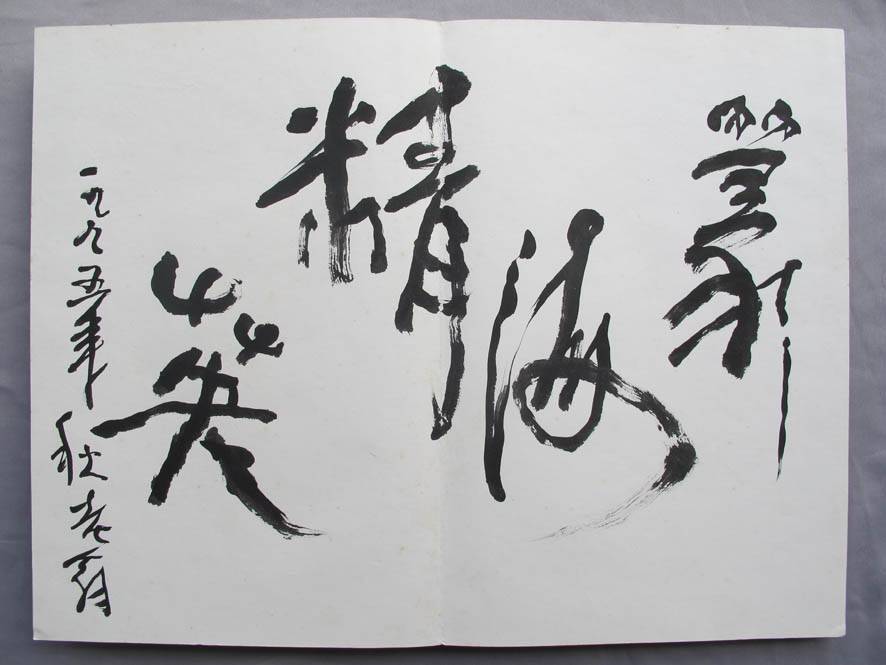 海
精
英
一九九五年秋老翁